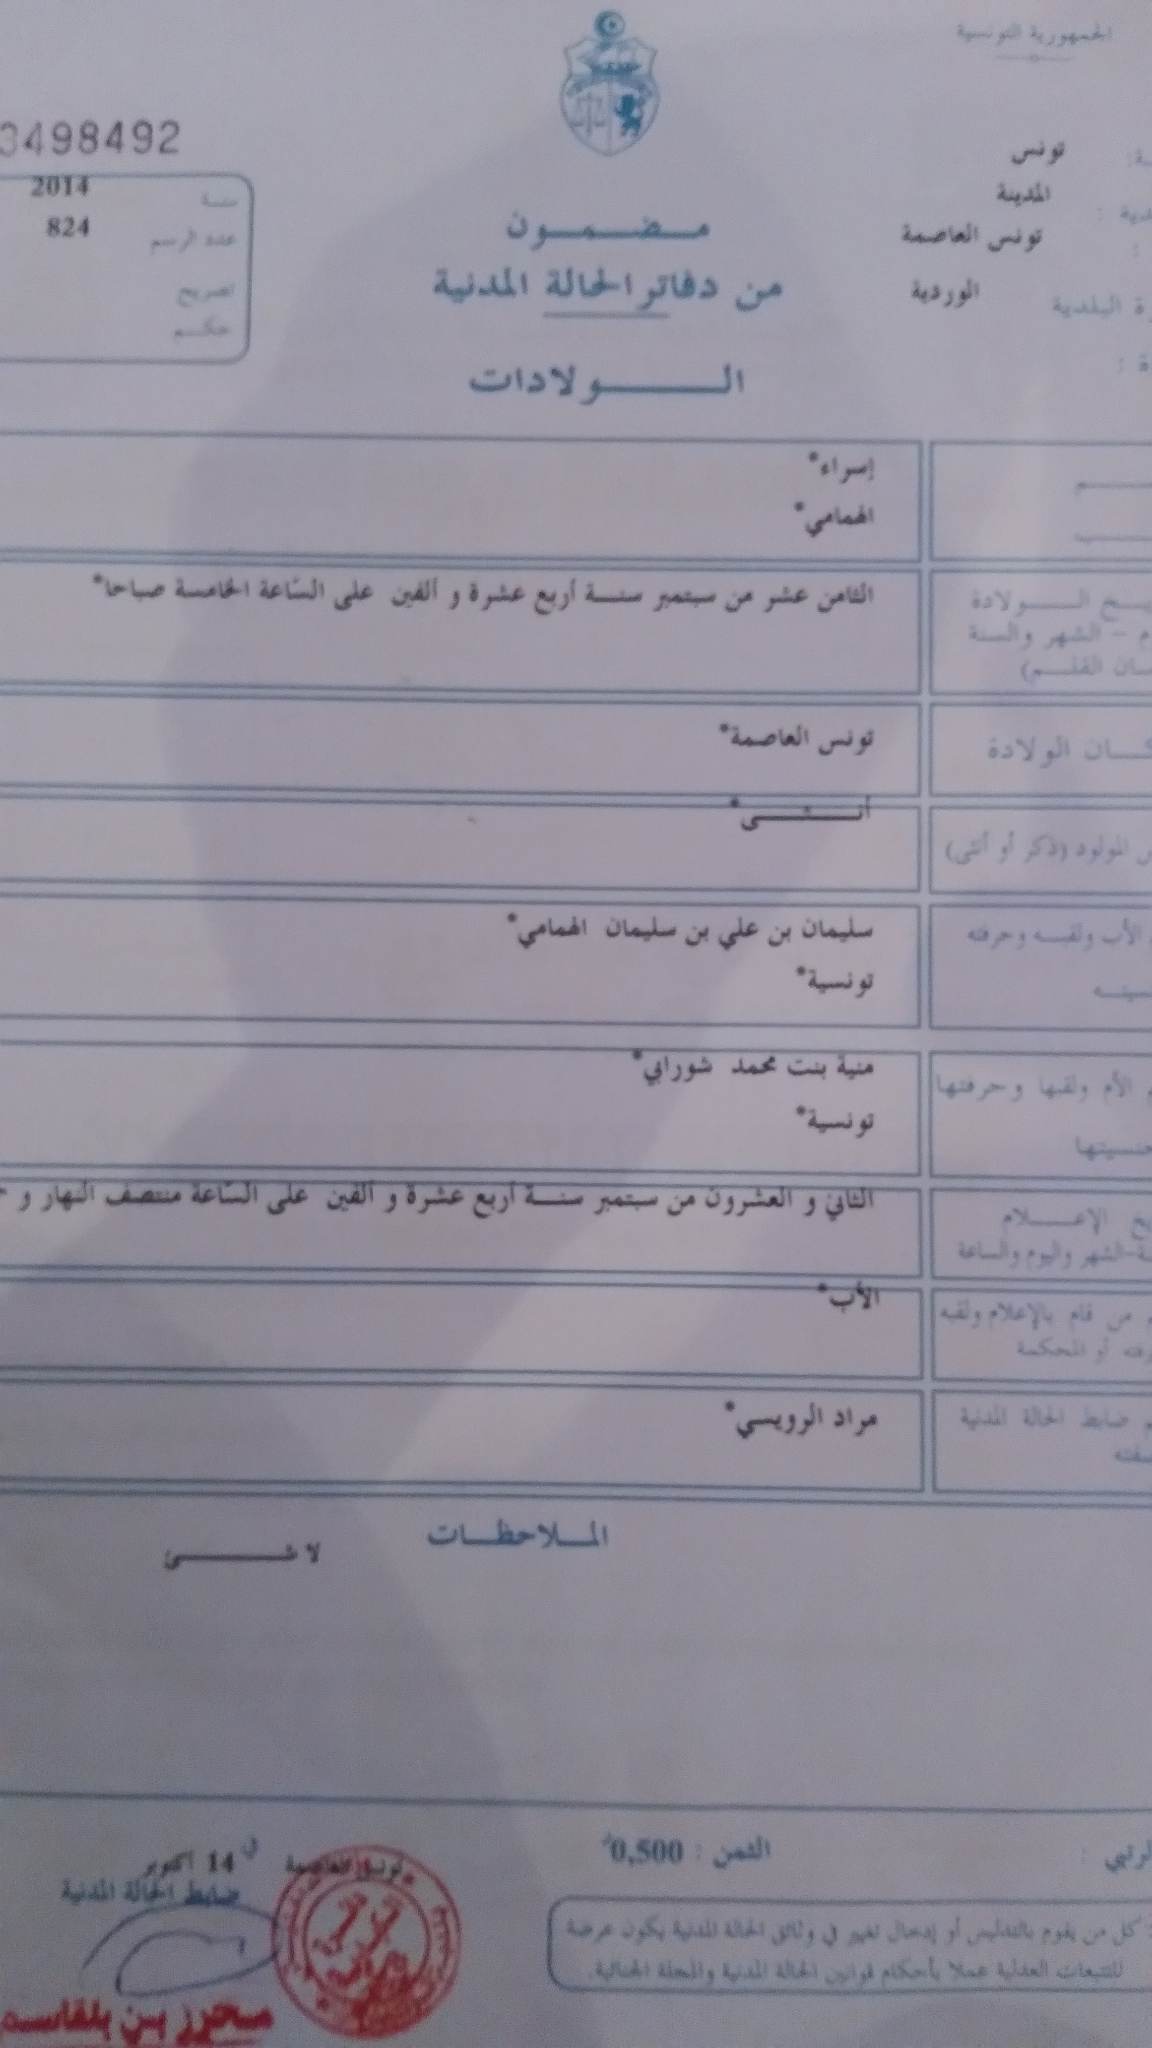 الجمهورية التونسية
3498492
تونس
المدينة
تونس العاصمة
ة البلدية الوردية
سنة 2014
عدد الرسم 824
تصريح
حكم
مضمون
من دفاتر الحالة المدنية
الولادات
إسراء*
الهمامي*
الولادة
الشهر والسنة
القلم)
الثامن عشر من سبتمبر سنة أربع عشرة و ألفين على السّاعة الخامسة صباحا*
الولادة
تونس العاصمة*
المولود (ذكر أو أنثى)
أنثى*
الأب ولقبه وحرفته
سليمان بن علي بن سليمان الهمامي*
تونسية*
الأم ولقبها وحرفتها
منية بنت محمد شورابي*
تونسية*
الإعلام
الشهر واليوم والساعة
الثاني و العشرون من سبتمبر سنة أربع عشرة و ألفين على السّاعة منتصف النهار و
من قام بالإعلام ولقبه
أو المحكمة
الأب*
ضابط الحالة المدنية
مراد الرويسي*
الملاحظات
لا شئ
الثمن : 0,500
تونس العاصمة في 14 أكتوبر
ضابط الحالة المدنية
محرز بن بلقاسم
كل من يقوم بالتدليس أو إدخال تغيير في وثائق الحالة المدنية يكون عرضة
للتتبعات العدلية عملا بأحكام قوانين الحالة المدنية والمجلة الجنائية.